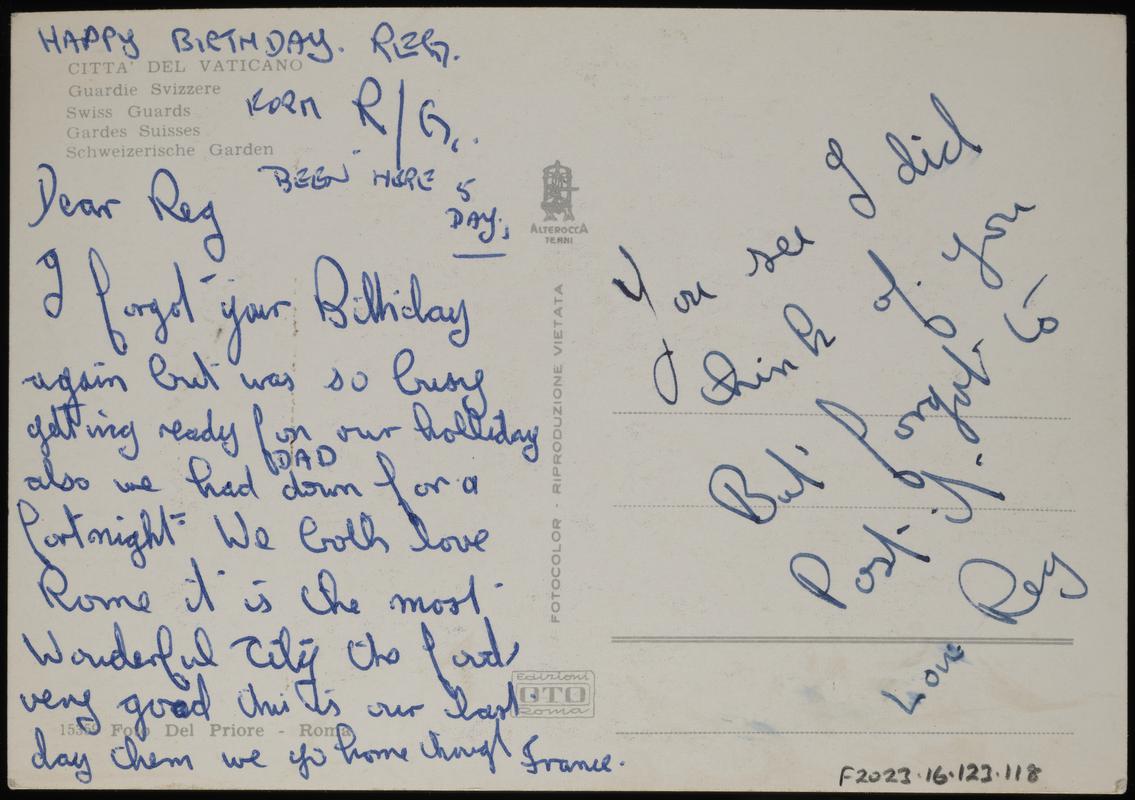 HAPPY BIRTHDAY. REG.
CITTA' DEL VATICANO
Guardie Svizzere
Swiss Guards
Gardes Suisses
Schweizerische Garden
FORM R/G..
BEEN HERE 5
DAY,
Dear Reg
I forgot your Bilthiday
again but was so busy
getting ready for our holliday
DAD
also we had down for a
fortnight We both love
Rome it is the most
Wonderful City the food
very good this is our last
day them we go home though France.
15359 Foto Del Priore - Roma
ALTEROCCA
TERNI
FOTOCOLOR - RIPRODUZIONE VIETATA
Edizioni
OTO
Roma
You see I did
think of you
But forgot to
Post it.
Love Reg
F2023.16.123.118